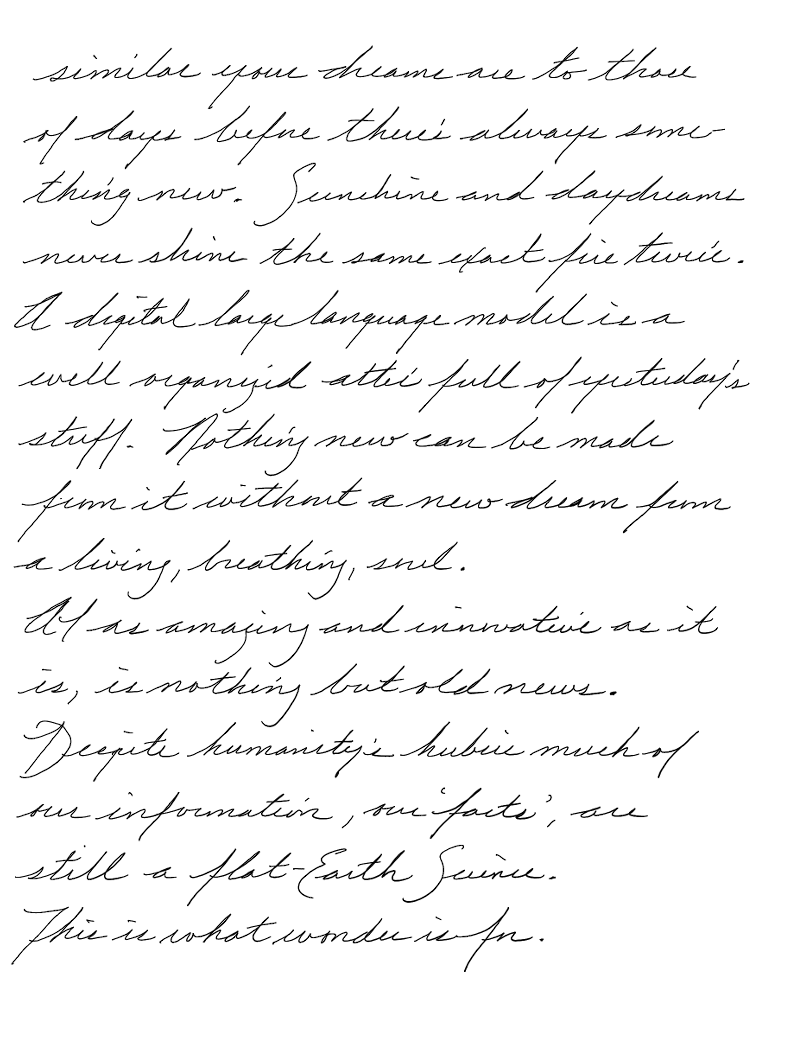 similar your dreams are to those
of days before there's always some-
thing new. Sunshine and daydreams
never shine the same exact fire twice.
A digital large language model is a
well organized attic full of yesterday's
stuff. Nothing new can be made
from it without a new dream from
a living, breathing, soul.
AI as amazing and innovative as it
is, is nothing but old news.
Despite humanity's hubris much of
our information, our 'facts', are
still a flat-Earth Science.
This is what wonder is for.